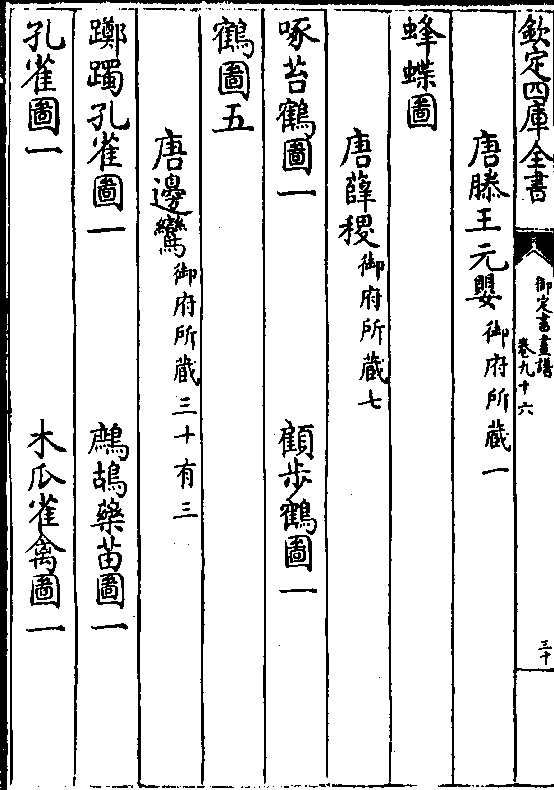 欽定四庫全書
御定書畫譜
卷九十六
三十
唐滕王元嬰御府所藏一
蜂蝶圖
唐薛稷御府所藏七
啄苔鶴圖一 顧步鶴圖一
鶴圖五
唐邊鸞御府所藏三十有三
躑躅孔雀圖一 鷓鴣藥苗圖一
孔雀圖一 木瓜雀禽圖一